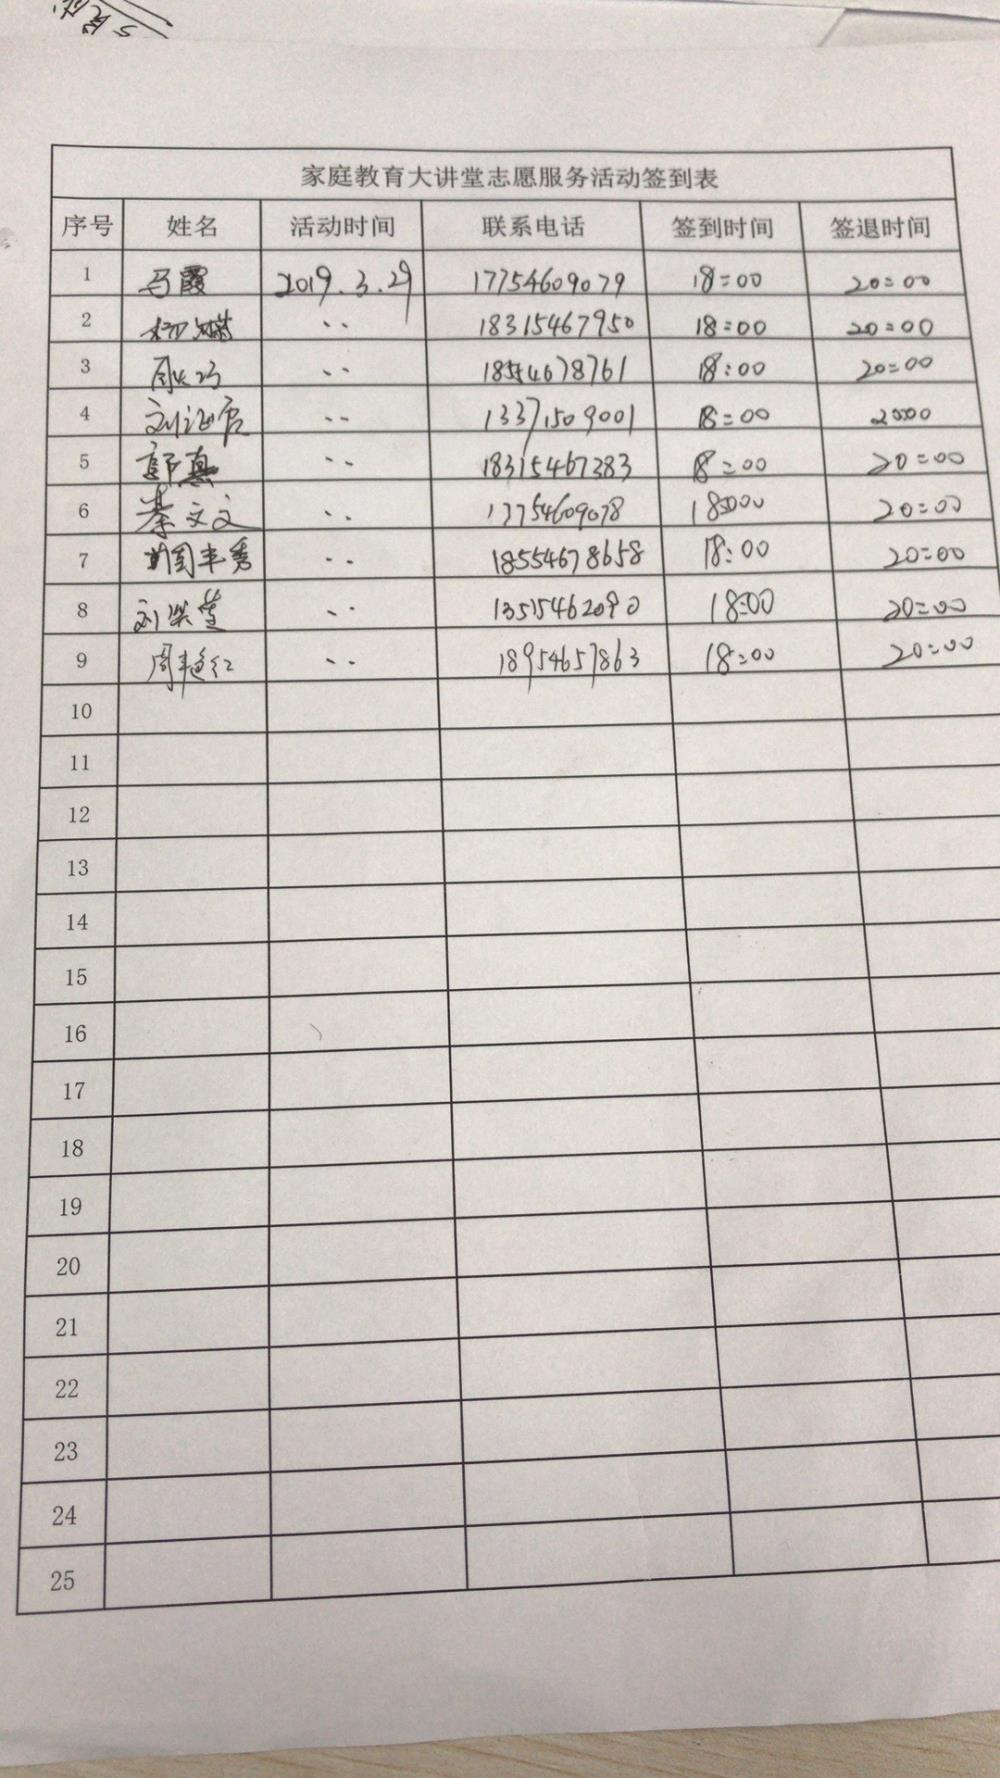 家庭教育大讲堂志愿服务活动签到表
序号 姓名 活动时间 联系电话 签到时间 签退时间
1 马霞 2019.3.29 17754609079 18:00 20:00
2 ·· 18315467950 18:00 20:00
3 ·· 18554678761 18:00 20:00
4 ·· 13371509001 18:00 20:00
5 郭真 ·· 18315467383 18:00 20:00
6 秦文文 ·· 13754609078 18:00 20:00
7 周丰秀 ·· 18554678658 18:00 20:00
8 ·· 13515462090 18:00 20:00
9 ·· 18954657863 18:00 20:00
10
11
12
13
14
15
16
17
18
19
20
21
22
23
24
25